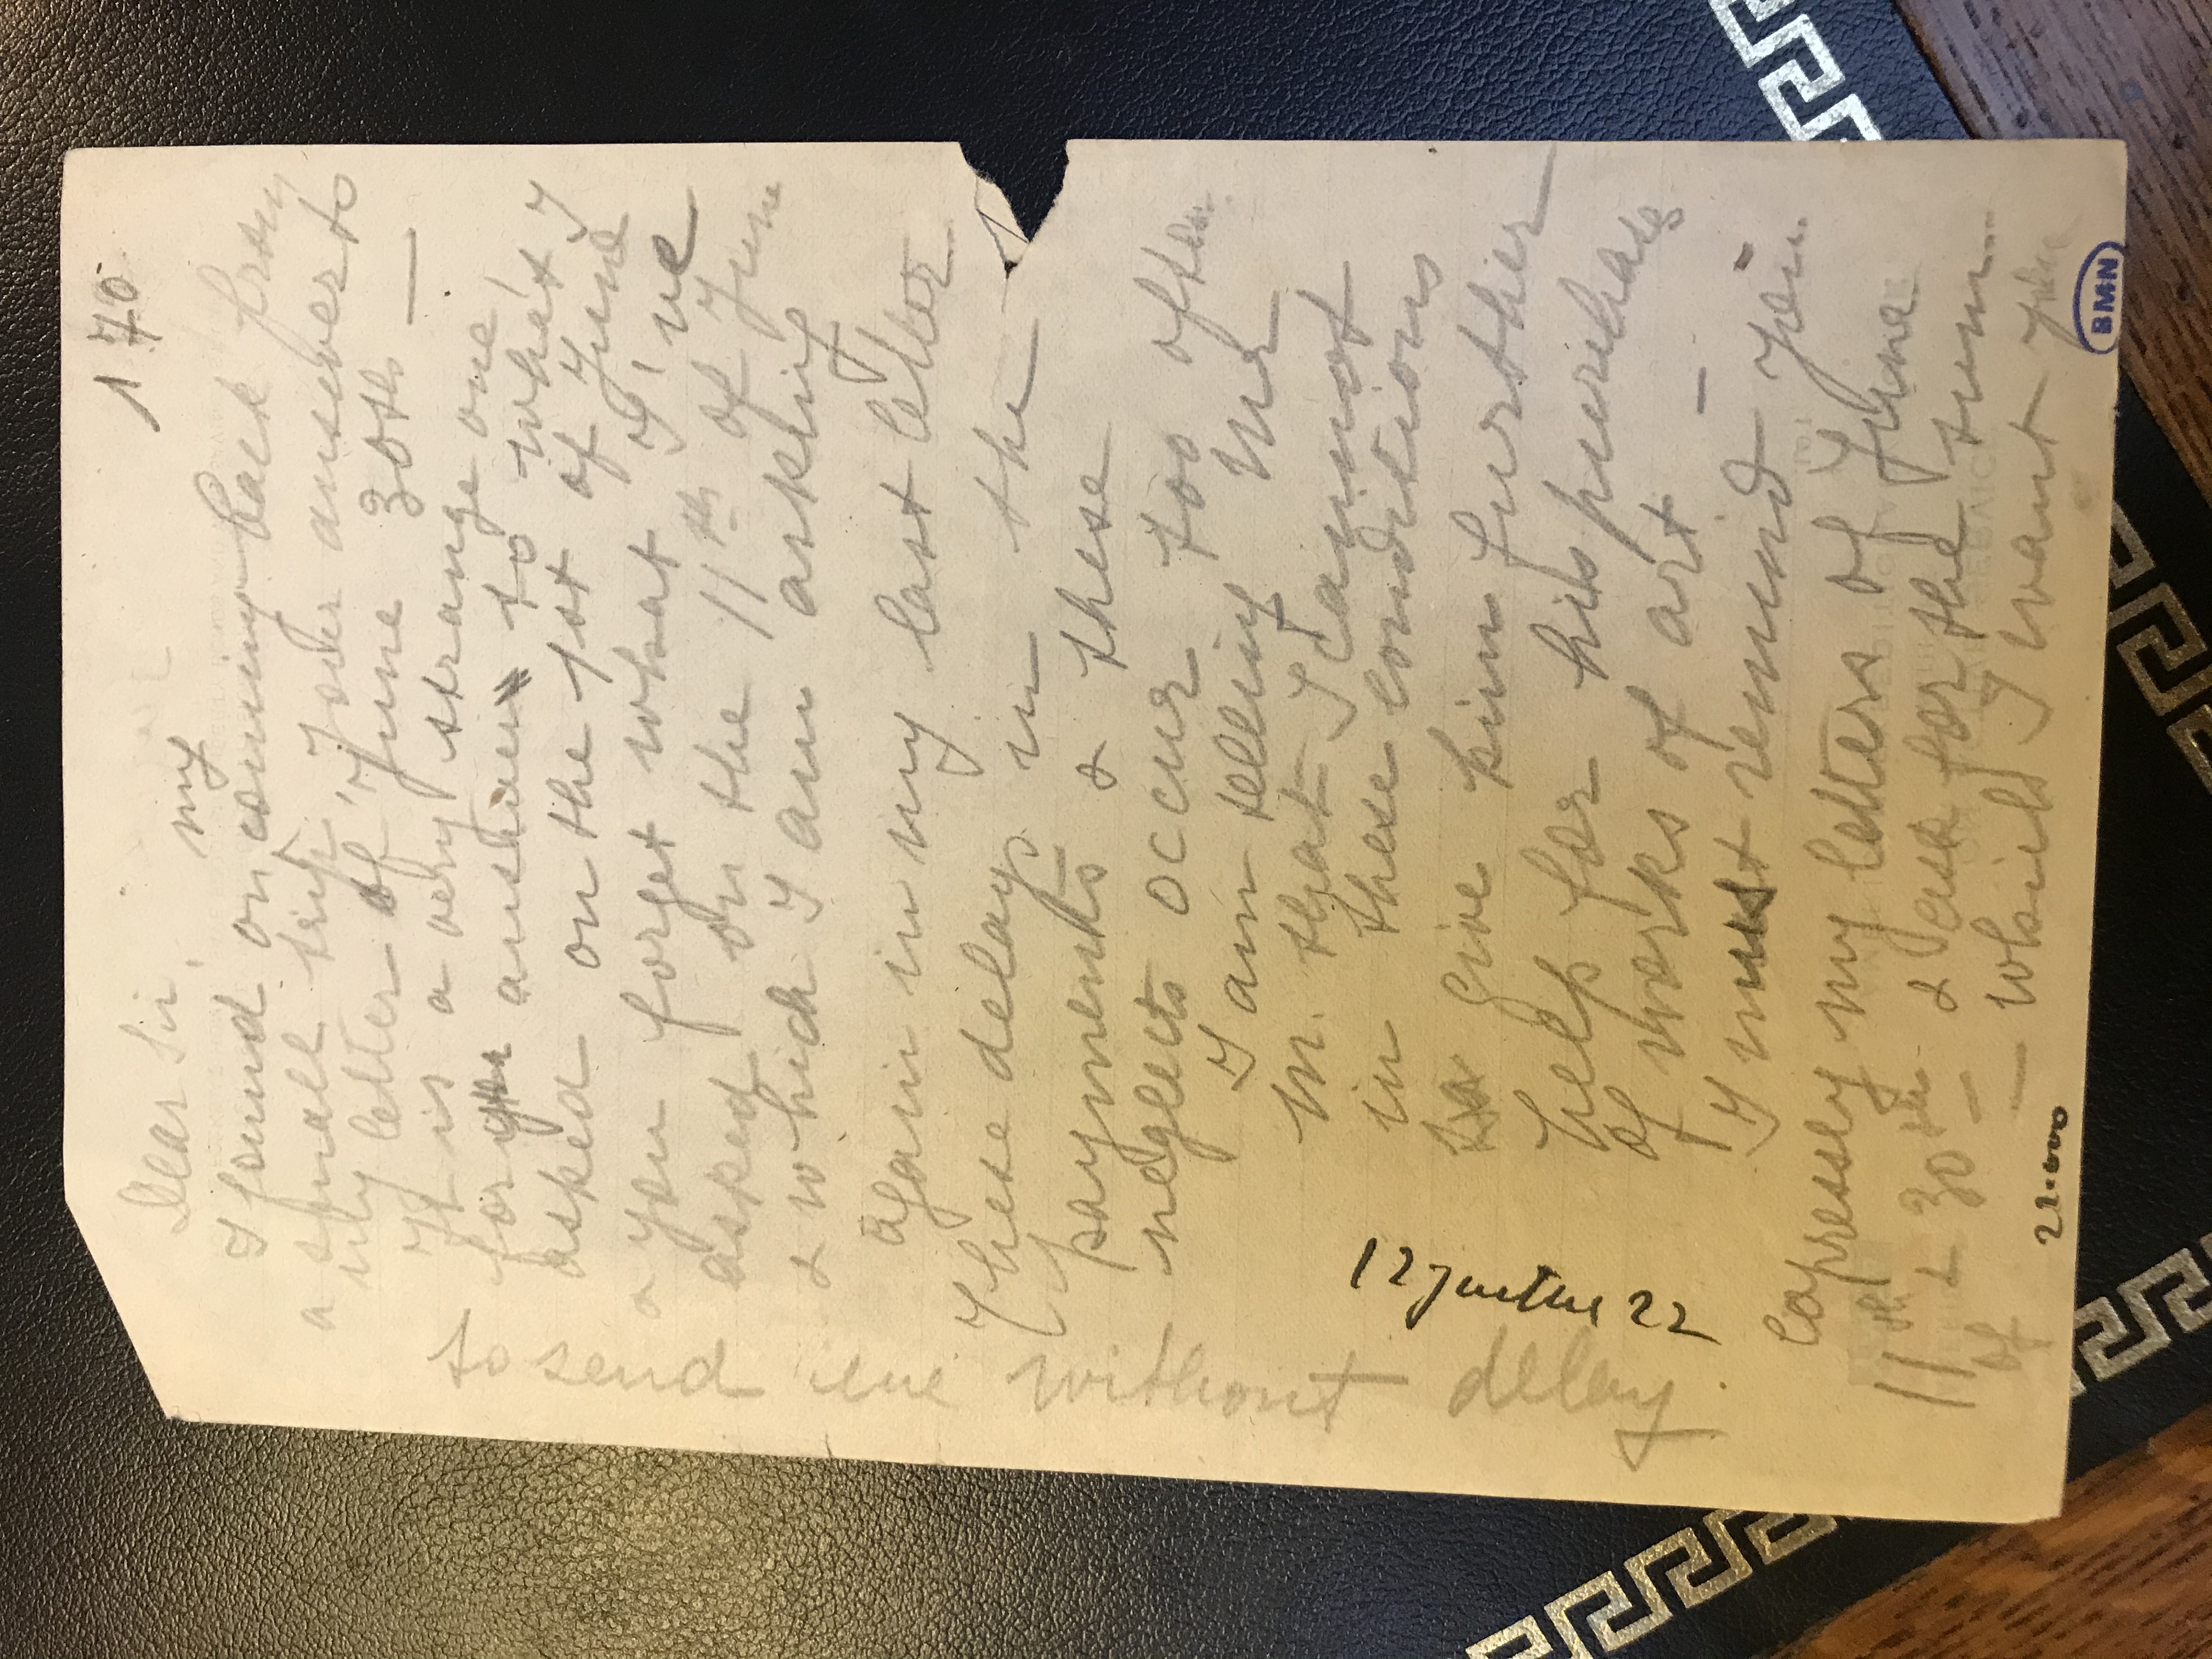 170
Dear Sir,
I found on coming back from
my
a small trip, your answer to
my letter of June 30th —
It is a very strange one
for you answer to what I
asked on the 1st of June
& you forget what I've
asked on the 11th of June
& which I am asking
again in my last letter
These delays in the
payments & these
neglects occur too often.
I am telling Mr
M. that I cannot
in these conditions
give him further
help for his purchases
of works of art —
I must remind you
expressly my letters of June
11th & 30th & ask for the sum
of — which I want you
22.000
to send me without delay.
12 Juillet 22
BMN